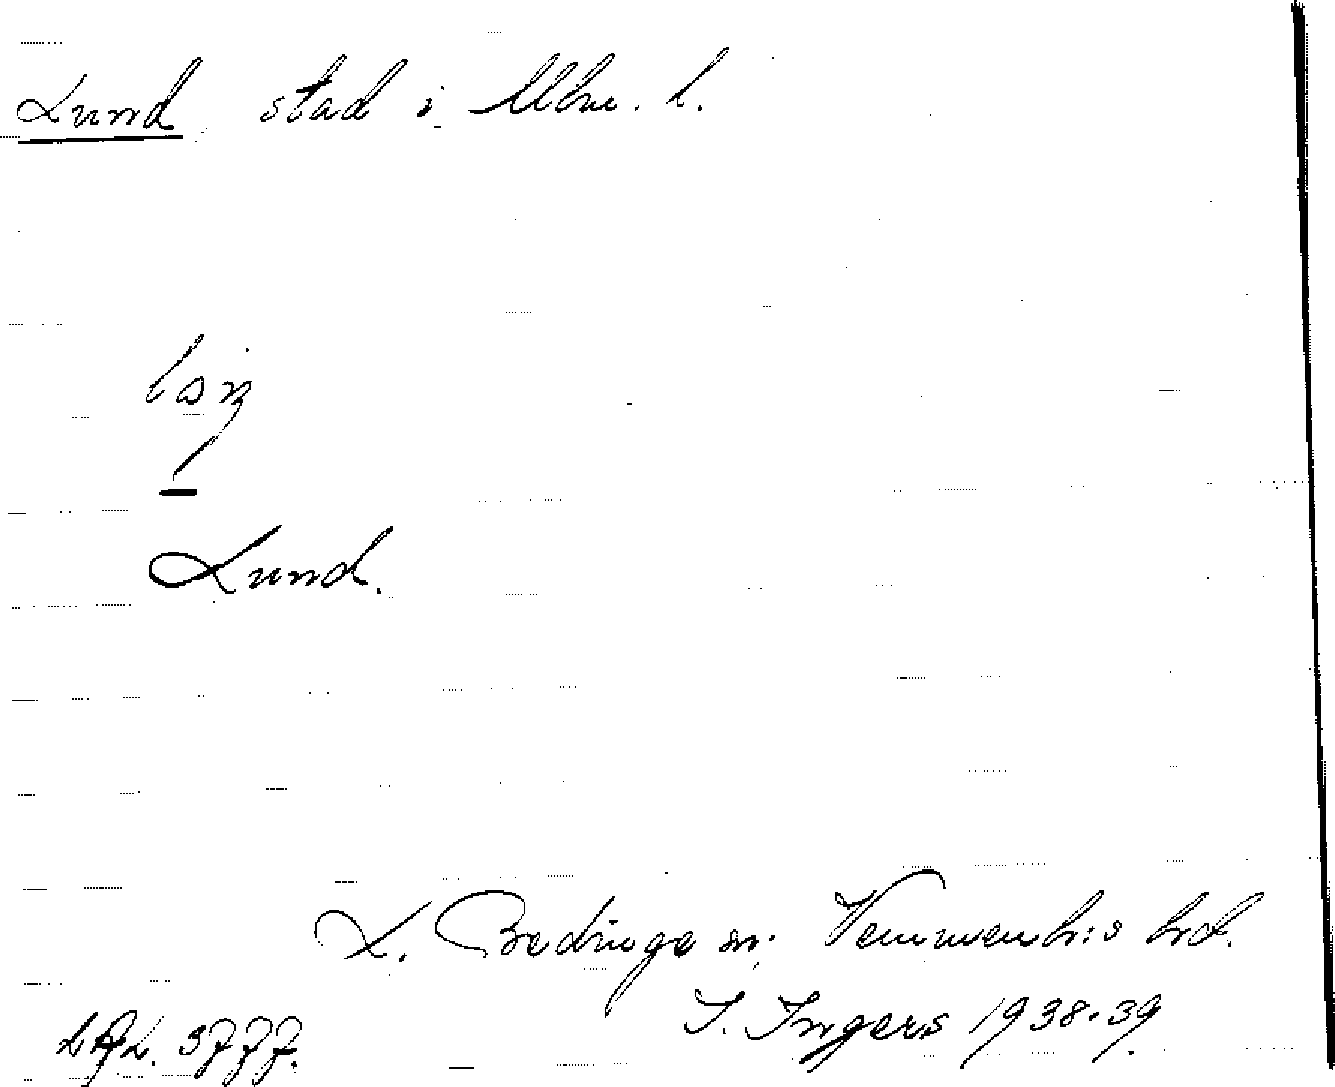 Lund stad i Mlm. l.
Lund.
L. Bedinge sn. Vemmenh:s hd.
I. Ingers 1938-39.
LAL. 3777.